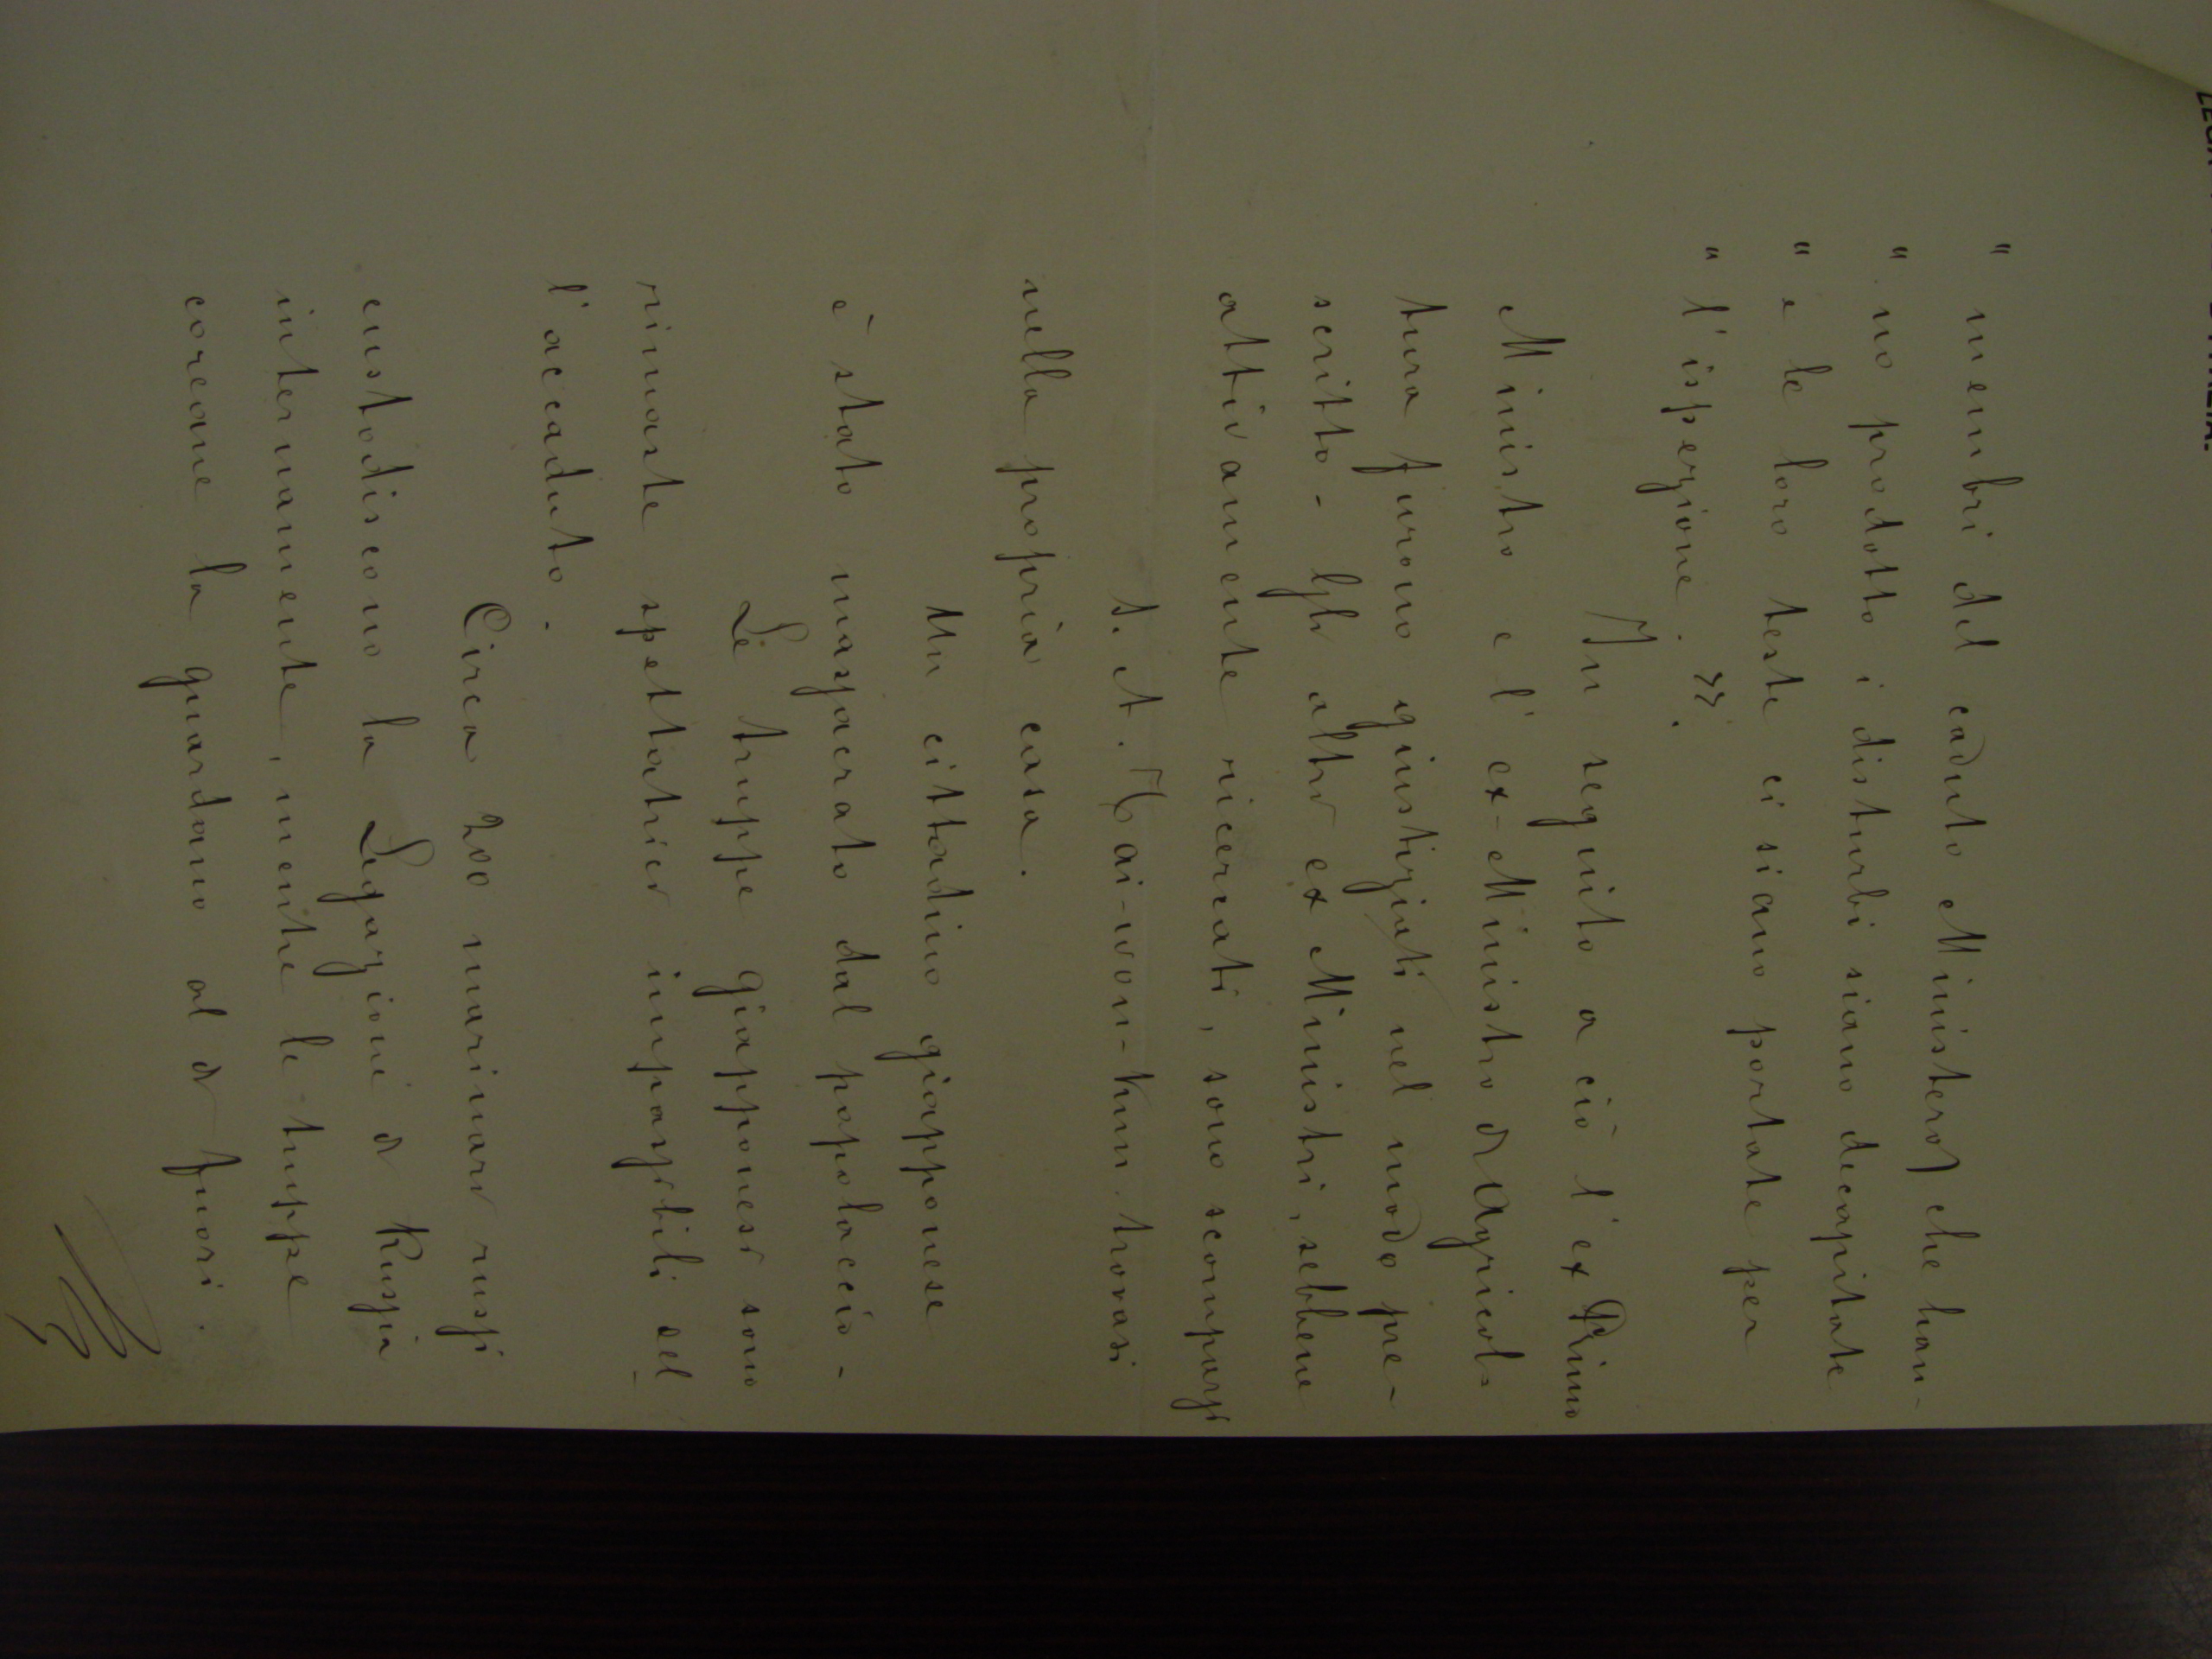 " membri del caduto Ministero) che han-
" no prodotto i disturbi siano decapitate
" e le loro teste ci siano portate per
" l'ispezione. ".
In seguito a ciò l'ex Primo
Ministro e l'ex-Ministro di Agricol-
tura furono giustiziati nel modo pre-
scritto - Gli altri ex Ministri, sebbene
attivamente ricercati, sono scomparsi
S. A. Tai-won-Kun trovasi
nella propria casa.
Un cittadino giapponese
è stato massacrato dal popolaccio -
Le truppe giapponesi sono
rimaste spettatrici impassibili del-
l'accaduto.
Circa 200 marinari russi
custodiscono la Legazione di Russia
internamente, mentre le truppe
coreane la guardano al di fuori.